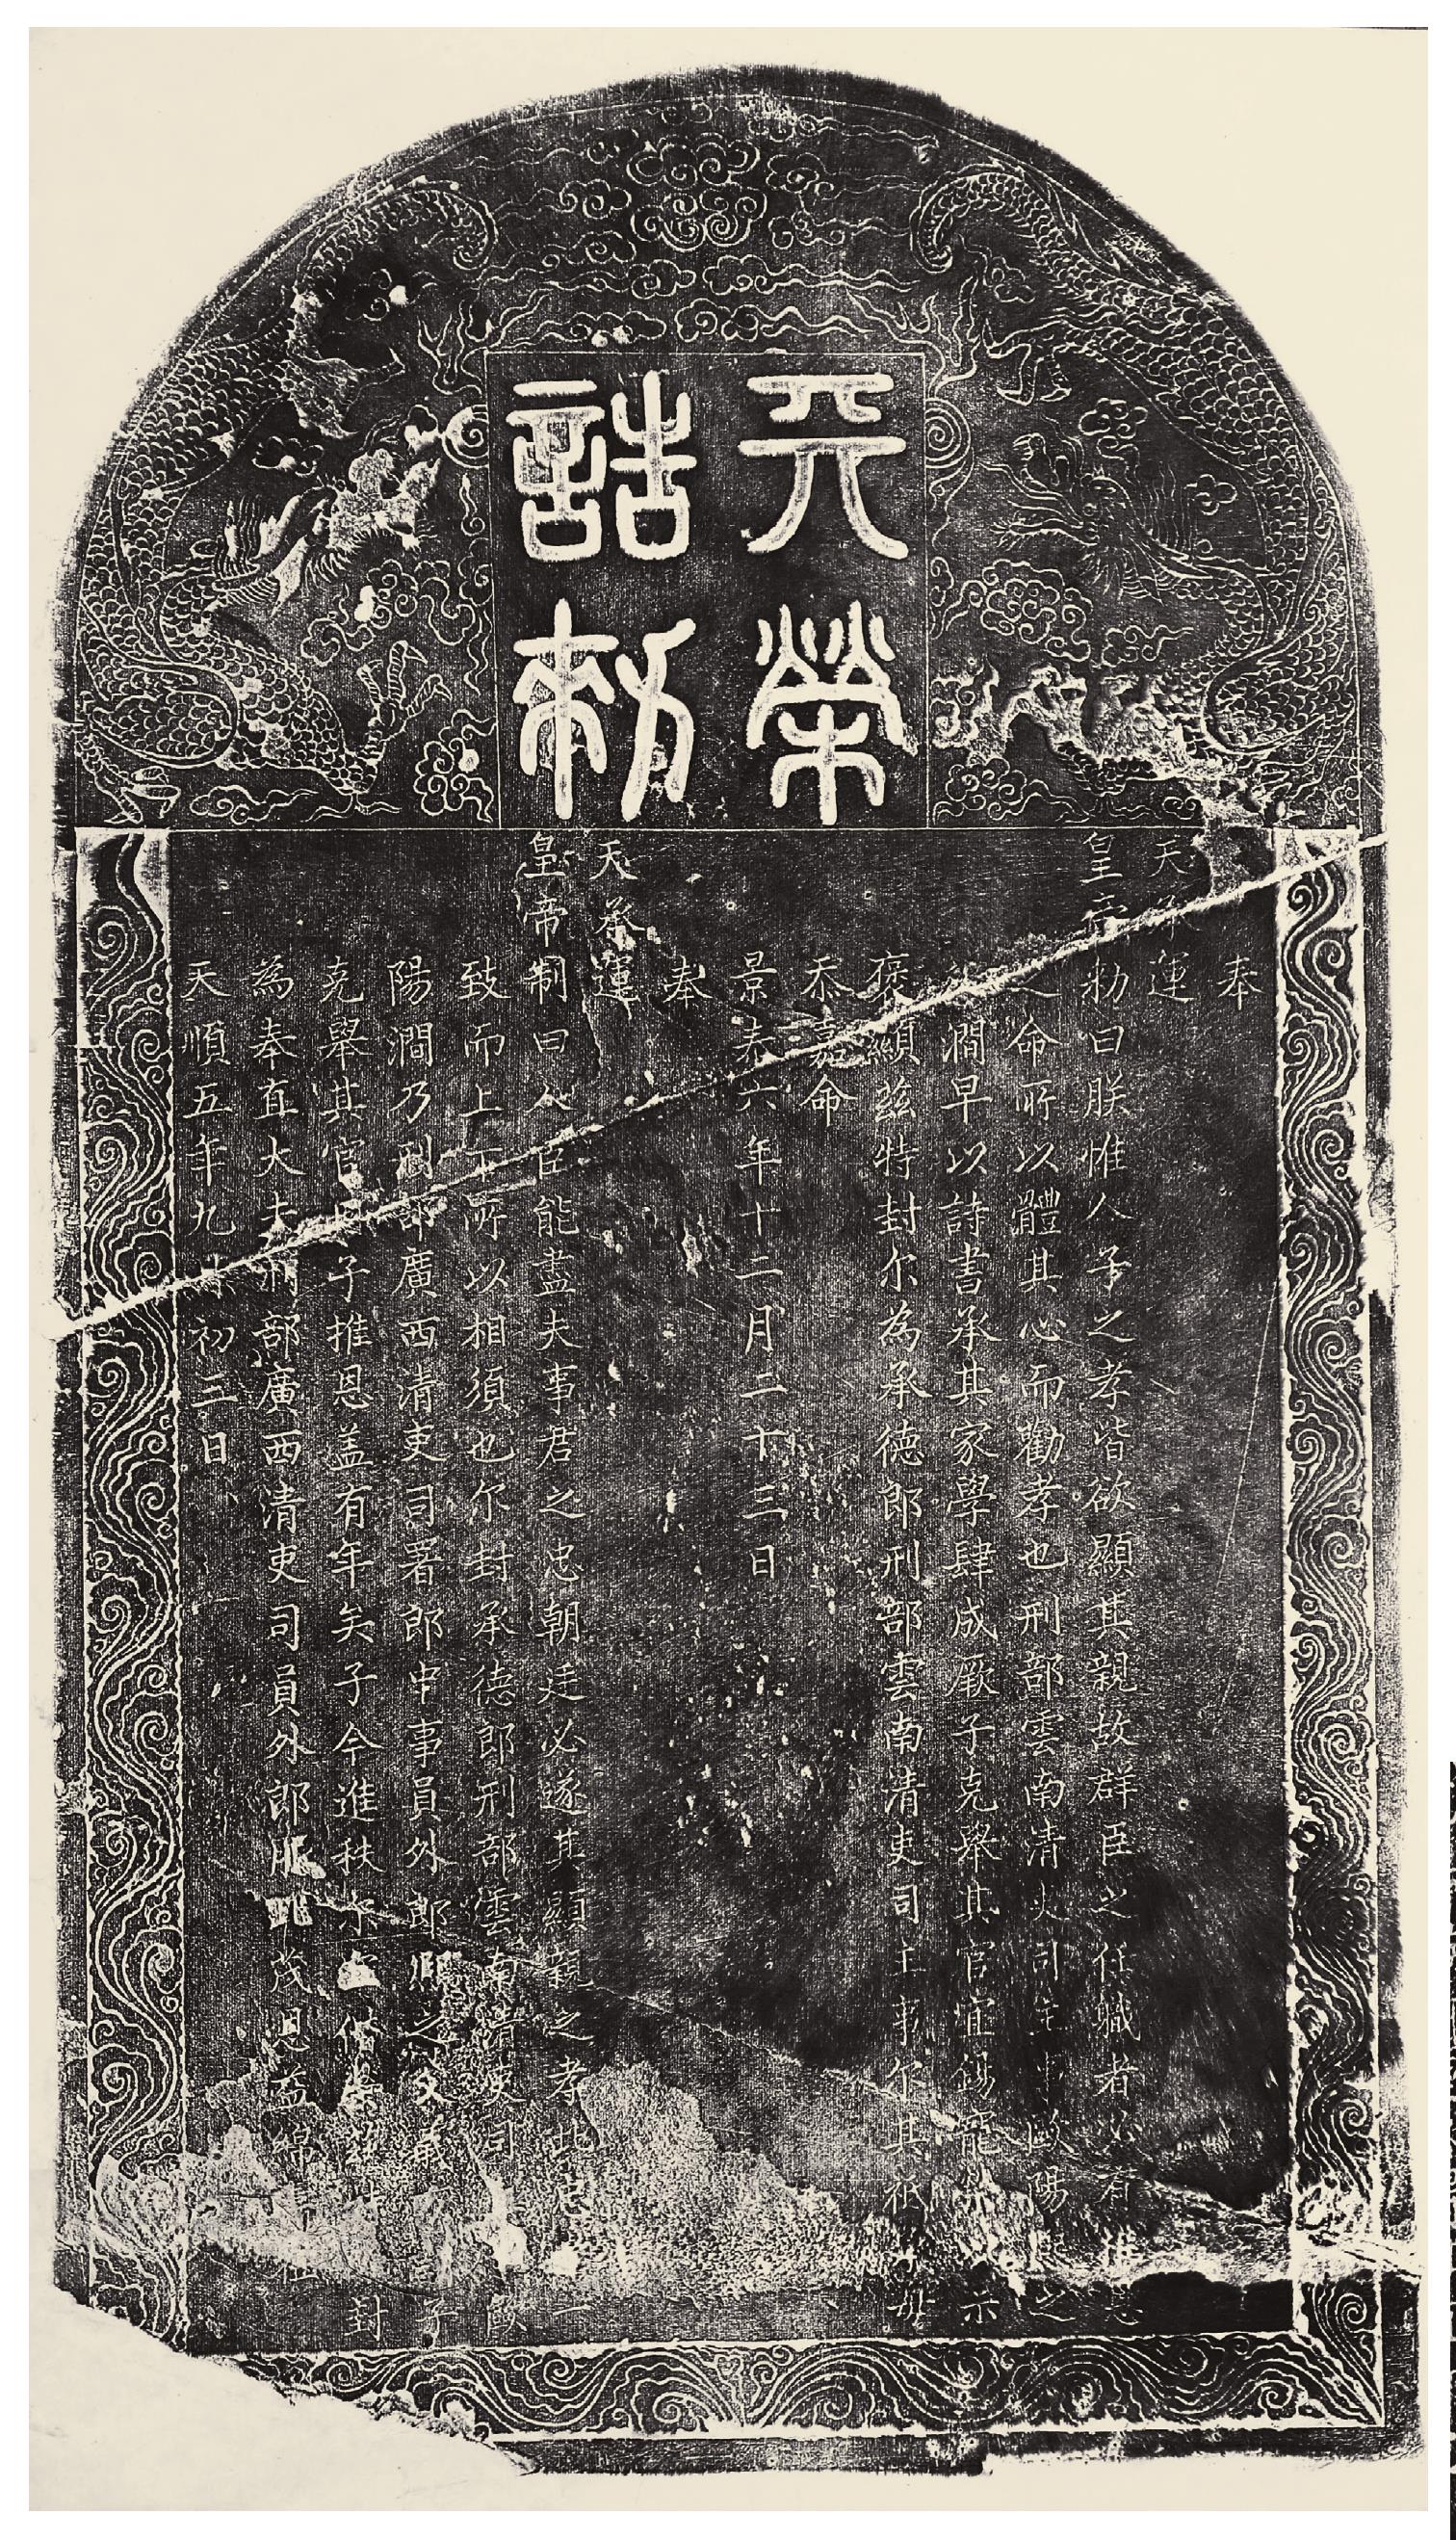 天榮
誥勑
奉
天承運
皇帝勑曰朕惟人子之孝皆欲顯其親故群臣之任職者必有推恩
之命所以體其心而勸孝也刑部雲南清吏司主事歐陽之
澗早以詩書承其家學肆成厥子克舉其官宜錫寵示
褒顯茲特封尔為承德郎刑部雲南清吏司主事尔其祗毋
忝嘉命
景泰六年十二月二十三日
奉
天承運
皇帝制曰人臣能盡夫事君之忠朝廷必遂其顯親之孝此恩一
致而上下所以相須也尔封承德郎刑部雲南清吏司歐
陽澗乃刑部廣西清吏司署郎中事員外郎之父義子
克舉其官子推恩盖有年矣子今進秩封
為奉直大夫刑部廣西清吏司員外郎服茂恩益
天順五年九初三日